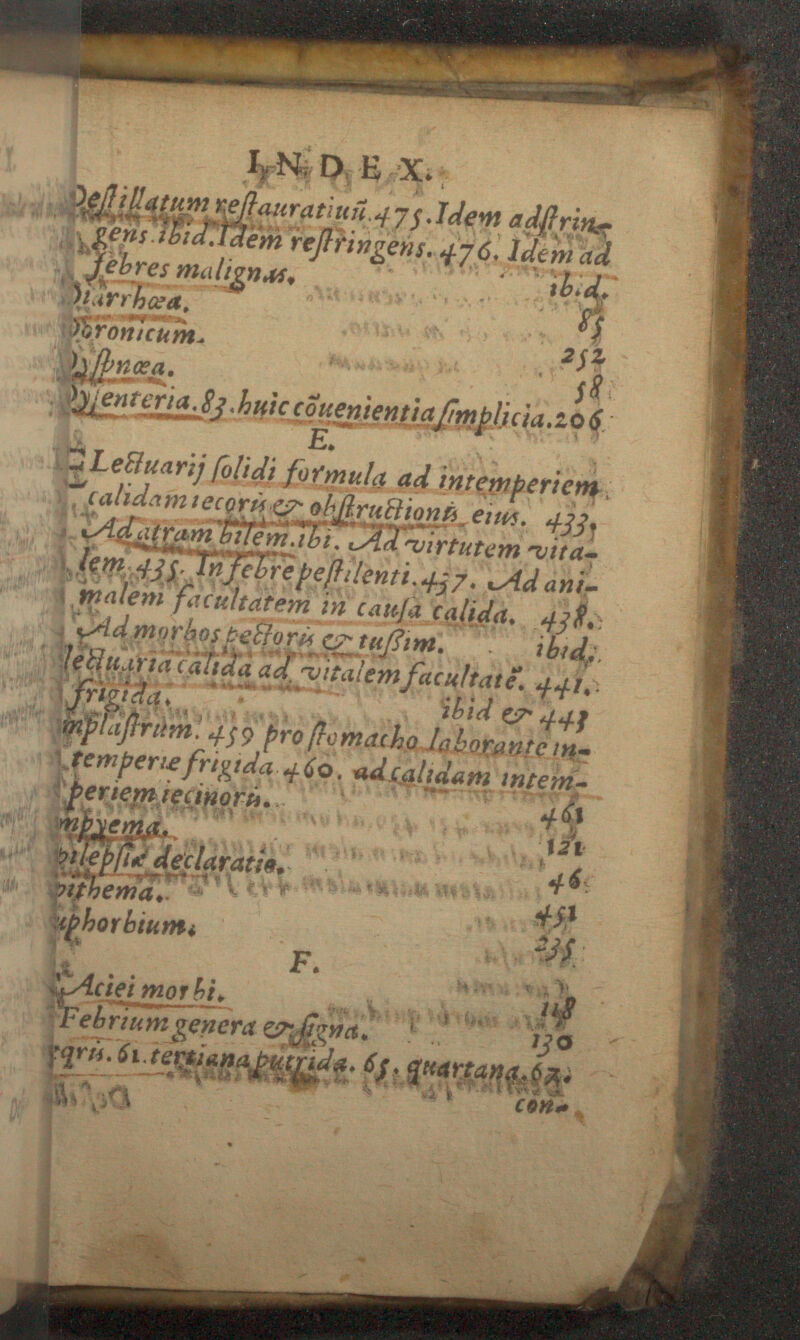 INDEX.
Destillatum restauratiuũ.475.Idem adstrin-
gens.ibid.Idem restringens.476. Idem ad
febres malignas, ibid.
Diarrhœa, 85
Doronicum. 252
Dyspnœa. 58
Dysenteria.83.huic cõuenientia simplicia.206
E.
ELectuarij solidi formula ad intemperiem
calidam iecoris & obstructionis eius. 433,
Ad atram bilem.ibi. Ad virtutem vita-
lem.435. In febre pestilenti.437. Ad ani-
malem facultatem in causa calida. 438.
Ad morbos pectoris & tussim. ibid.
Electuaria calida ad vitalem facultatẽ. 441.
frigida, ibid & 443
Emplastrum. 459 pro stomacho laborante in-
temperie frigida.460. ad calidam intem-
periem iecinoris. 461
Empyema. 121
Epilepsiæ declaratio, 46
Epithema, 451
Euphorbium, 235
F.
FAciei morbi, 118
Febrium genera & signa. 130
61.tertiana putrida. 65. quartana.
con-